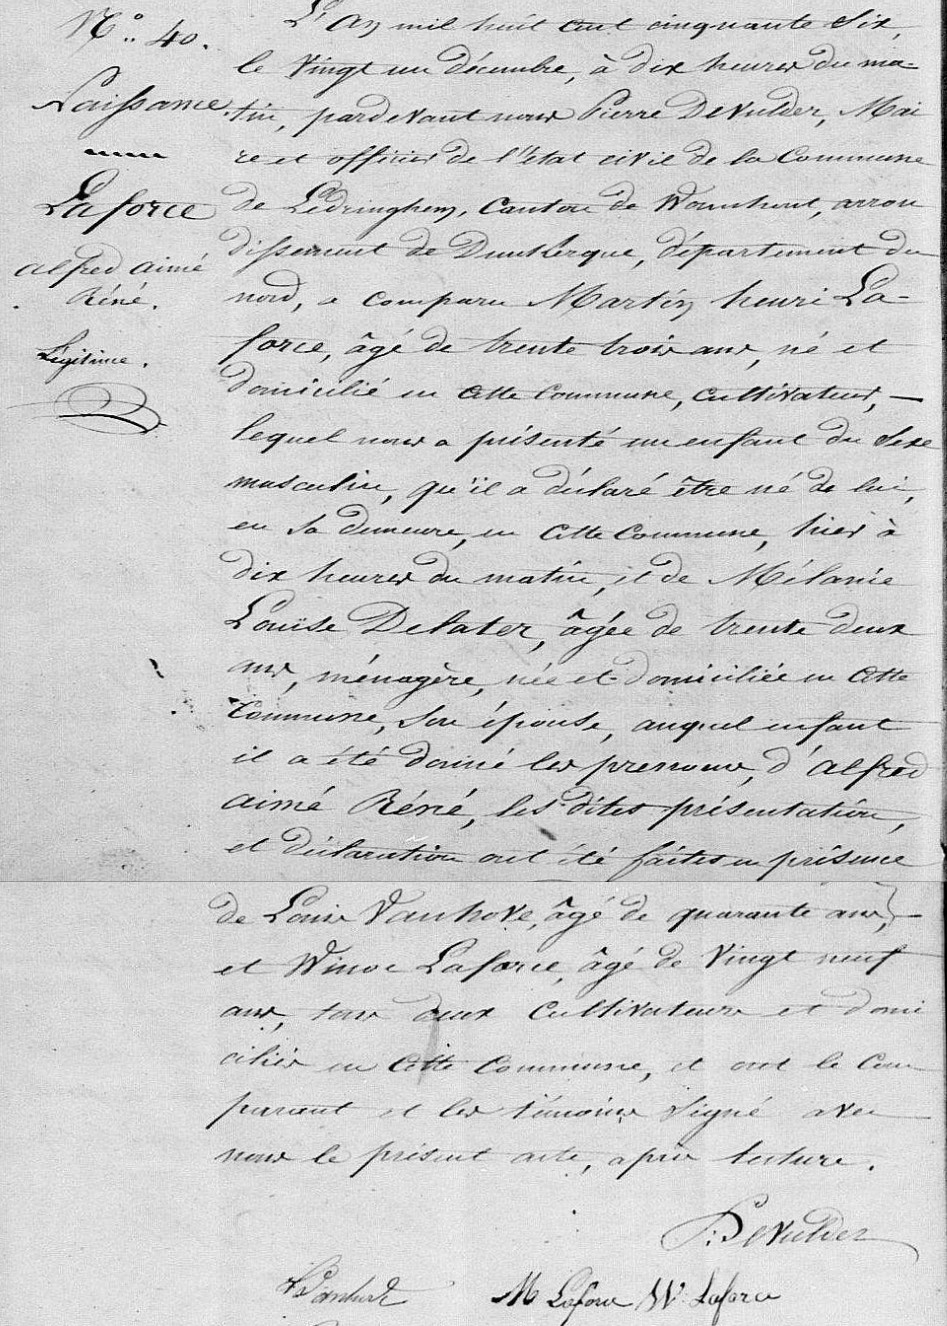 N° 40.
Naissance
Laforce
alfred aimé
Réné.
Légitime.
L'an mil huit cent cinquante six,
le vingt un décembre, à dix heures du ma-
tin, pardevant nous Pierre DeVulder, Mai
re et officier de l'état civil de la Commune
de Ledringhem, Canton de Wormhout, arron
dissement de Dunkerque, département du
nord, a comparu Martin henri La-
force, âgé de trente trois ans, né et
domicilié en cette Commune, cultivateur, —
lequel nous a présenté un enfant du sexe
masculin, qu'il a déclaré être né de lui,
en sa demeure, en cette Commune, hier à
dix heures du matin, et de Mélanie
Louise Delater, âgée de trente deux
ans, ménagère, née et domiciliée en cette
Commune, son épouse, auquel enfant
il a été donné les prenoms, d'alfred
aimé Réné, les dites présentation,
et déclaration ont été faites en présence
de Louis Vanhove, âgé de quarante ans, —
et Winoc Laforce, âgé de vingt neuf
ans, tous deux cultivateurs et domi
ciliés en cette Commune, et ont le com
parant et les témoins signé avec
nous le présent acte, après lecture.
P. DeVulder
M Laforce W. Laforce